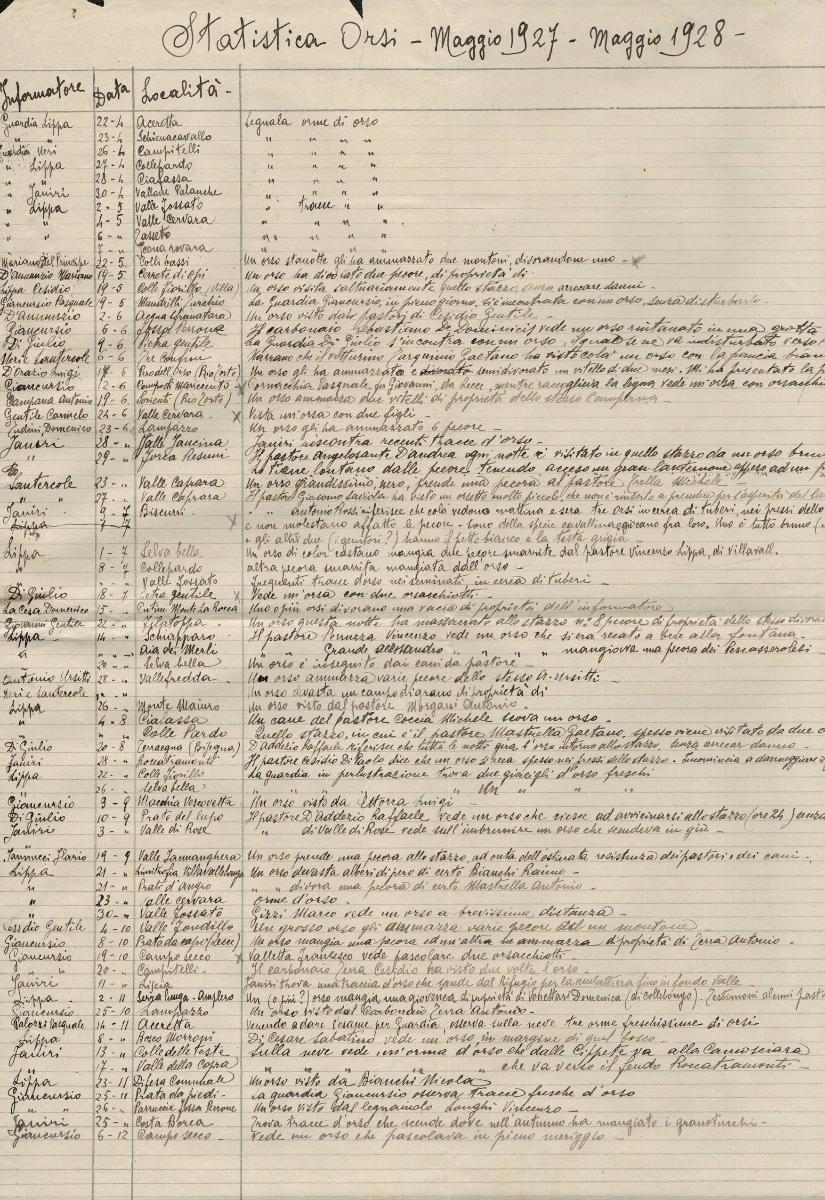 Statistica Orsi - Maggio 1927 - Maggio 1928 -
Informatore Data Località -
Guardia Lippa 22-4 Aceretta Segnala orme di orso
" " 23-4 Schienacavallo " " " "
Guardia Neri 26-4 Campitelli " " " "
" Lippa 27-4 Collepardo " " " "
" " 28-4 Cialassa " " " "
" Janiri 30-4 Vallone Palanche " " " "
" Lippa 2-5 Valle Fossato " tracce " "
" " 4-5 Valle Cervara " " " "
" " 6-" " " " "
" " 7-" " " " "
22-5 Colli bassi Un orso stanotte gli ha ammazzato due montoni, divorandone uno -
D'Annunzio Mariano 19-5 Cerreto di Opi Un orso ha divorato due pecore, di proprietà di
Lippa Cesidio 19-5 Colle Fiorillo (Villa) Un orso visita saltuariamente quello stazzo, senza arrecare danni -
Giancursio Pasquale 19-5 La Guardia Giancursio, in pieno giorno, si è incontrata con un orso, senza disturbarlo -
D'Annunzio 2-6 Acqua sfranatara Un orso visto dai pastori di Cesidio Gentile
Giancursio 6-6 Fossa Perrone Il carbonaio Sebastiano Di Dominicis, vede un orso rintanato in una grotta
Di Giulio 9-6 Pietra gentile La Guardia Di Giulio s'incontra con un orso, il quale se ne va indisturbato verso
Neri e Santercole 6-6 Tre Confini Narrano che il vetturino Gargunio Gaetano ha visto colà un orso con la pancia
D'Orazio Luigi 17-6 Un orso gli ha ammazzato e semidivorato un vitello di due mesi. Mi ha presentato la
Giancursio 12-6 Cornacchia Pasquale, fu Giovanni, da Lecce, mentre raccoglieva la legna vede un'orsa con
Campana Antonio 19-6 Sorienti (Rio Torto) Un orso ammazza due vitelli di proprietà dello stesso Campana -
Gentile Carmelo 24-6 Valle Cervara - Vista un'orsa con due figli -
Tudini Domenico 23-6 Lampazzo Un orso gli ha ammazzato 6 pecore -
Janiri 28-" Valle Jancina Janiri riscontra recenti tracce d'orso -
" 29-" Forca Resuni Il pastore Angelosante D'Andrea ogni notte è visitato in quello stazzo da un orso
lo tiene lontano dalle pecore tenendo acceso un gran lanternone appeso ad un
Santercole 23-" Valle Caprara Un orso grandissimo, nero, prende una pecora al pastore Michele -
" " 27-" Valle Caprara Il pastore Giacomo Saviola ha visto un orsetto molto piccolo, che non è riuscito a prendere per l'asperità del
Janiri 9-7 Biscurri " Antonio Rossi riferisce che colà vedono mattina e sera tre orsi in cerca di tuberi, nei pressi dello
Lippa 7-7 e non molestano affatto le pecore - sono della specie cavallina giocano fra loro. Uno è tutto bruno
e gli altri due (i genitori?) hanno il petto bianco e la testa grigia -
Lippa 1-7 Selva bella Un orso di color castano mangia due pecore smarrite dal pastore Vincenzo Lippa, di Villavall.
" 8-7 Collepardo altra pecora smarrita mangiata dall'orso -
" "-" Valle Fossato Frequenti tracce d'orso nei seminati, in cerca di tuberi -
Di Giulio 18-7 Pietra gentile Vede un'orsa con due orsacchiotti -
La Cesa Domenico 15-" Monte La Rocca Uno o più orsi divorano una vacca di proprietà dell'informatore
Giovanni Gentile 22-" Un orso questa notte ha massacrato allo stazzo n. 8 pecore di proprietà dello stesso
Lippa 14-" Schiapparo Il pastore Peruzza Vincenzo vede un orso che si era recato a bere alla fontana -
" "-" Aia dei Merli " " Grande Alessandro " " " mangiava una pecora dei Pescasserolesi -
" 20-" Selva bella Un orso è inseguito dai cani da pastore -
Antonio Ursitti 28-" Vallefredda - Un orso ammazza varie pecore dello stesso A. Ursitti -
Neri e Santercole "-" Un orso devasta un campo di grano di proprietà di
Lippa 26-" Monte Maiuro Un orso visto dal pastore Morgani Antonio -
" 4-8 Cialassa Un cane del pastore Coccia Michele scova un orso -
" "-" Colle Pardo Quello stazzo, in cui è il pastore Mastrella Gaetano, spesso viene visitato da due
Di Giulio 20-8 Terraegna (Bisegna) D'Addezio Raffaele riferisce che tutte le notti gira l'orso intorno allo stazzo, senza arrecar danno -
Janiri 28-" Roccatramonti Il pastore Cesidio Di Paolo dice che un orso si reca spesso nei pressi dello stazzo -
Lippa 22-" Colle Fiorillo La guardia in perlustrazione trova due giacigli d'orso freschi
" 26-" Selva bella " " " Un " "
Giancursio 3-9 Macchia Vescovetta Un orso visto da Ettorra Luigi -
Di Giulio 10-9 Prato del Lupo Il pastore D'Addezio Raffaele vede un orso che riesce ad avvicinarsi allo stazzo (ore 24) senza
Janiri 3-" Valle di Rose " " di Valle di Rose vede sull'imbrunire un orso che scendeva in giù -
Iannucci Ilario 19-9 Valle Jannanghera Un orso prende una pecora allo stazzo, ad onta dell'ostinata resistenza dei pastori e dei cani -
Lippa 21-" Limitrofia Villavallelonga Un orso devasta alberi di pero di certo Bianchi
" 21-" Prati d'Angro " " divora una pecora di certo Mastrella Antonio -
" 23-" Valle Cervara orme d'orso -
" 30-" Valle Fossato Gizzi Marco vede un orso a brevissima distanza -
Cesidio Gentile 4-10 Valle Fondillo Un grosso orso gli ammazza varie pecore ed un montone
Giancursio 8-10 Prato da capo (Lecce) Un orso mangia una pecora ed un'altra ne ammazza di proprietà di Terra Antonio -
Giancursio 19-10 Campo secco Valletta Francesco vede pascolare due orsacchiotti -
" 20-" Campitelli - Il carbonaio Terra Cesidio ha visto due volte l'orso -
Janiri 11-" Liscia Janiri trova una traccia d'orso che scende dal Rifugio per la mulattiera fino in fondo Valle -
Lippa - 2-11 Serra lunga - Amplero Un (o più?) orso mangia una giovenca, di proprietà di Venettari Domenica (di Collelongo) - Testimoni alcuni
Giancursio 25-10 Lampazzo Un orso visto dal Carbonaio Terra Antonio -
Palozzi Pasquale 14-11 Aceretta Venendo a dare l'esame per Guardia, osserva sulla neve tre orme freschissime di orsi -
Lippa 8-" Bosco Morroni Di Cesare Sabatino vede un orso, in margine di quel bosco -
Janiri 13-" Colle delle Teste Sulla neve vede un'orma d'orso che dalle Cippete va alla Camosciara
" 17-" Valle della Capra " " " " " " che va verso il feudo Roccatramonti -
Lippa 23-11 Difesa Comunale Un orso visto da Bianchi Nicola -
Giancursio 25-11 Prata da piedi - La guardia Giancursio osserva tracce fresche d'orso
" " 26-" Un orso visto dal legnaiuolo Longhi Vincenzo -
Janiri 25-" Costa Borea Trova tracce d'orso che scende dove nell'autunno ha mangiato i granoturchi -
Giancursio 6-12 Campo secco - Vede un orso che pascolava in pieno meriggio -